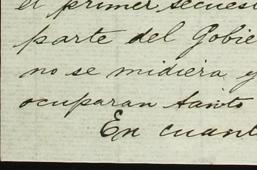 el primer secuest
parte del Gobie
no se midiera y
ocuparan tanto
En cuant